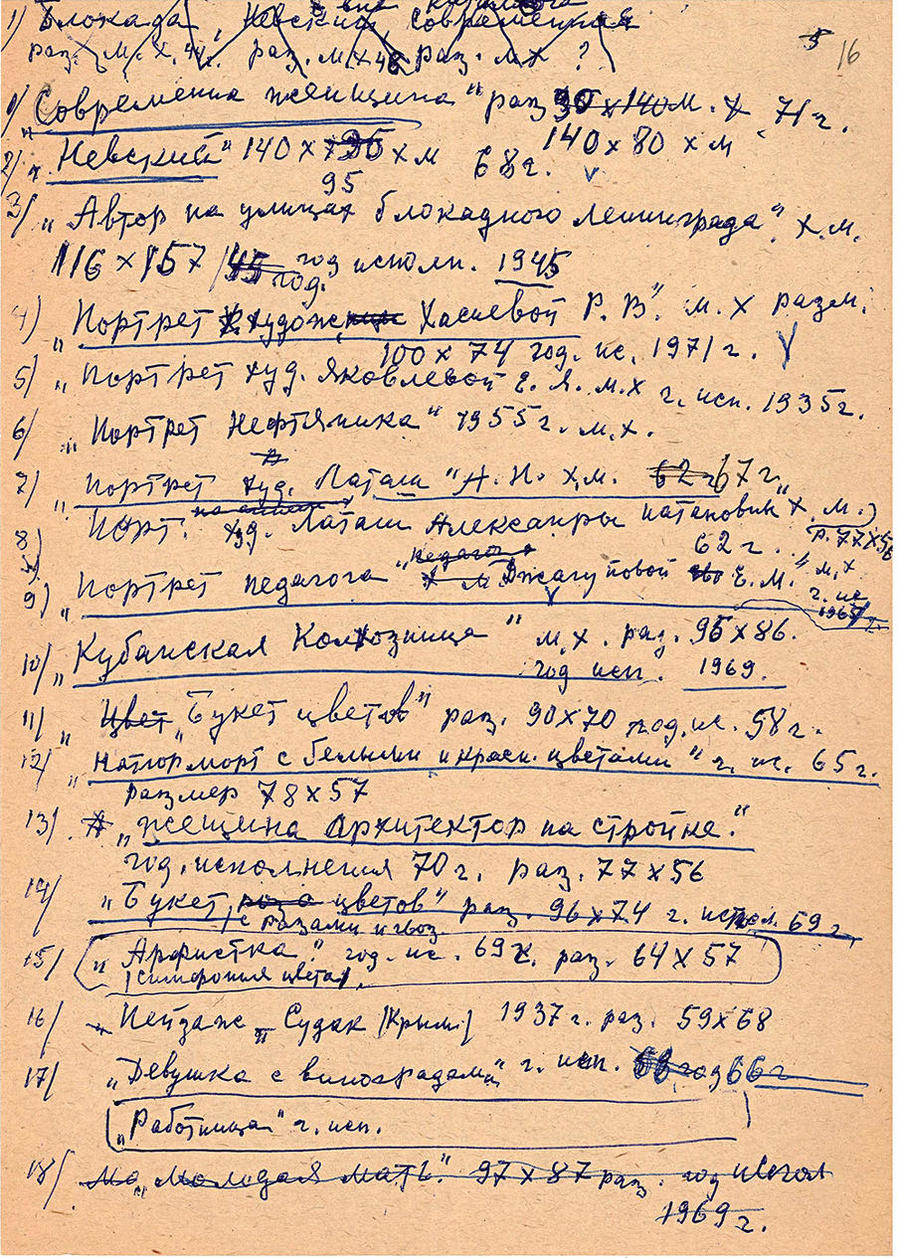 1) Блокада, Невский, Современная
раз. м. х. 44. раз. м х 48 раз. м х ?
5 16
1) „Современна женщина" раз 90 х 140 м. х 71 г.
140 х 80 х м
2) „Невский" 140 х 95 х м 68 г.
95
3) „Автор на улицах блокадного Ленинграда". х. м.
116 х 157 / 45 год исполн. 1945
год.
4) „Портрет художн Хасиевой Р. В". м. х разм.
100 х 74 год. ис. 1971 г. V
5) „Портрет худ. Яковлевой Е. Я. м. х г. исп. 1935 г.
6) „Портрет Нефтяника" 1955 г. м. х.
7) „Портрет худ. Латаш "А. И. х. м. 62 г 67 г.
8) Порт. худ. Латаш Александры х. м.
р. 77 х 56
62 г.
9) „Портрет педагога „ х м Джагуповой Е. М." м. х
г. ис
1965
10) „Кубанская Колхозница" м. х. раз. 96 х 86.
год исп. 1969.
11) „Цвет „Букет цветов" раз. 90 х 70 год. ис. 58 г.
12) „Натюрморт с белыми и красн. цветами" г. ис. 65 г.
размер 78 х 57
13) „Жещина Архитектор на стройке."
год. исполнения 70 г. раз. 77 х 56
14) „Букет, роза цветов" раз. 96 х 74 г. испол. 69 г.
с розами и гвоз.
15) „Арфистка." год. ис. 69 г. раз. 64 х 57
(Симфония цвета)
16) „Пейзаж „Судак (Крым) 1937 г. раз. 59 х 68
17) „Девушка с виноградом" г. исп. 66 год 66 г
„Работница" г. исп.
18) Мо „Молодая мать". 97 х 87 раз. год исгол
1969 г.